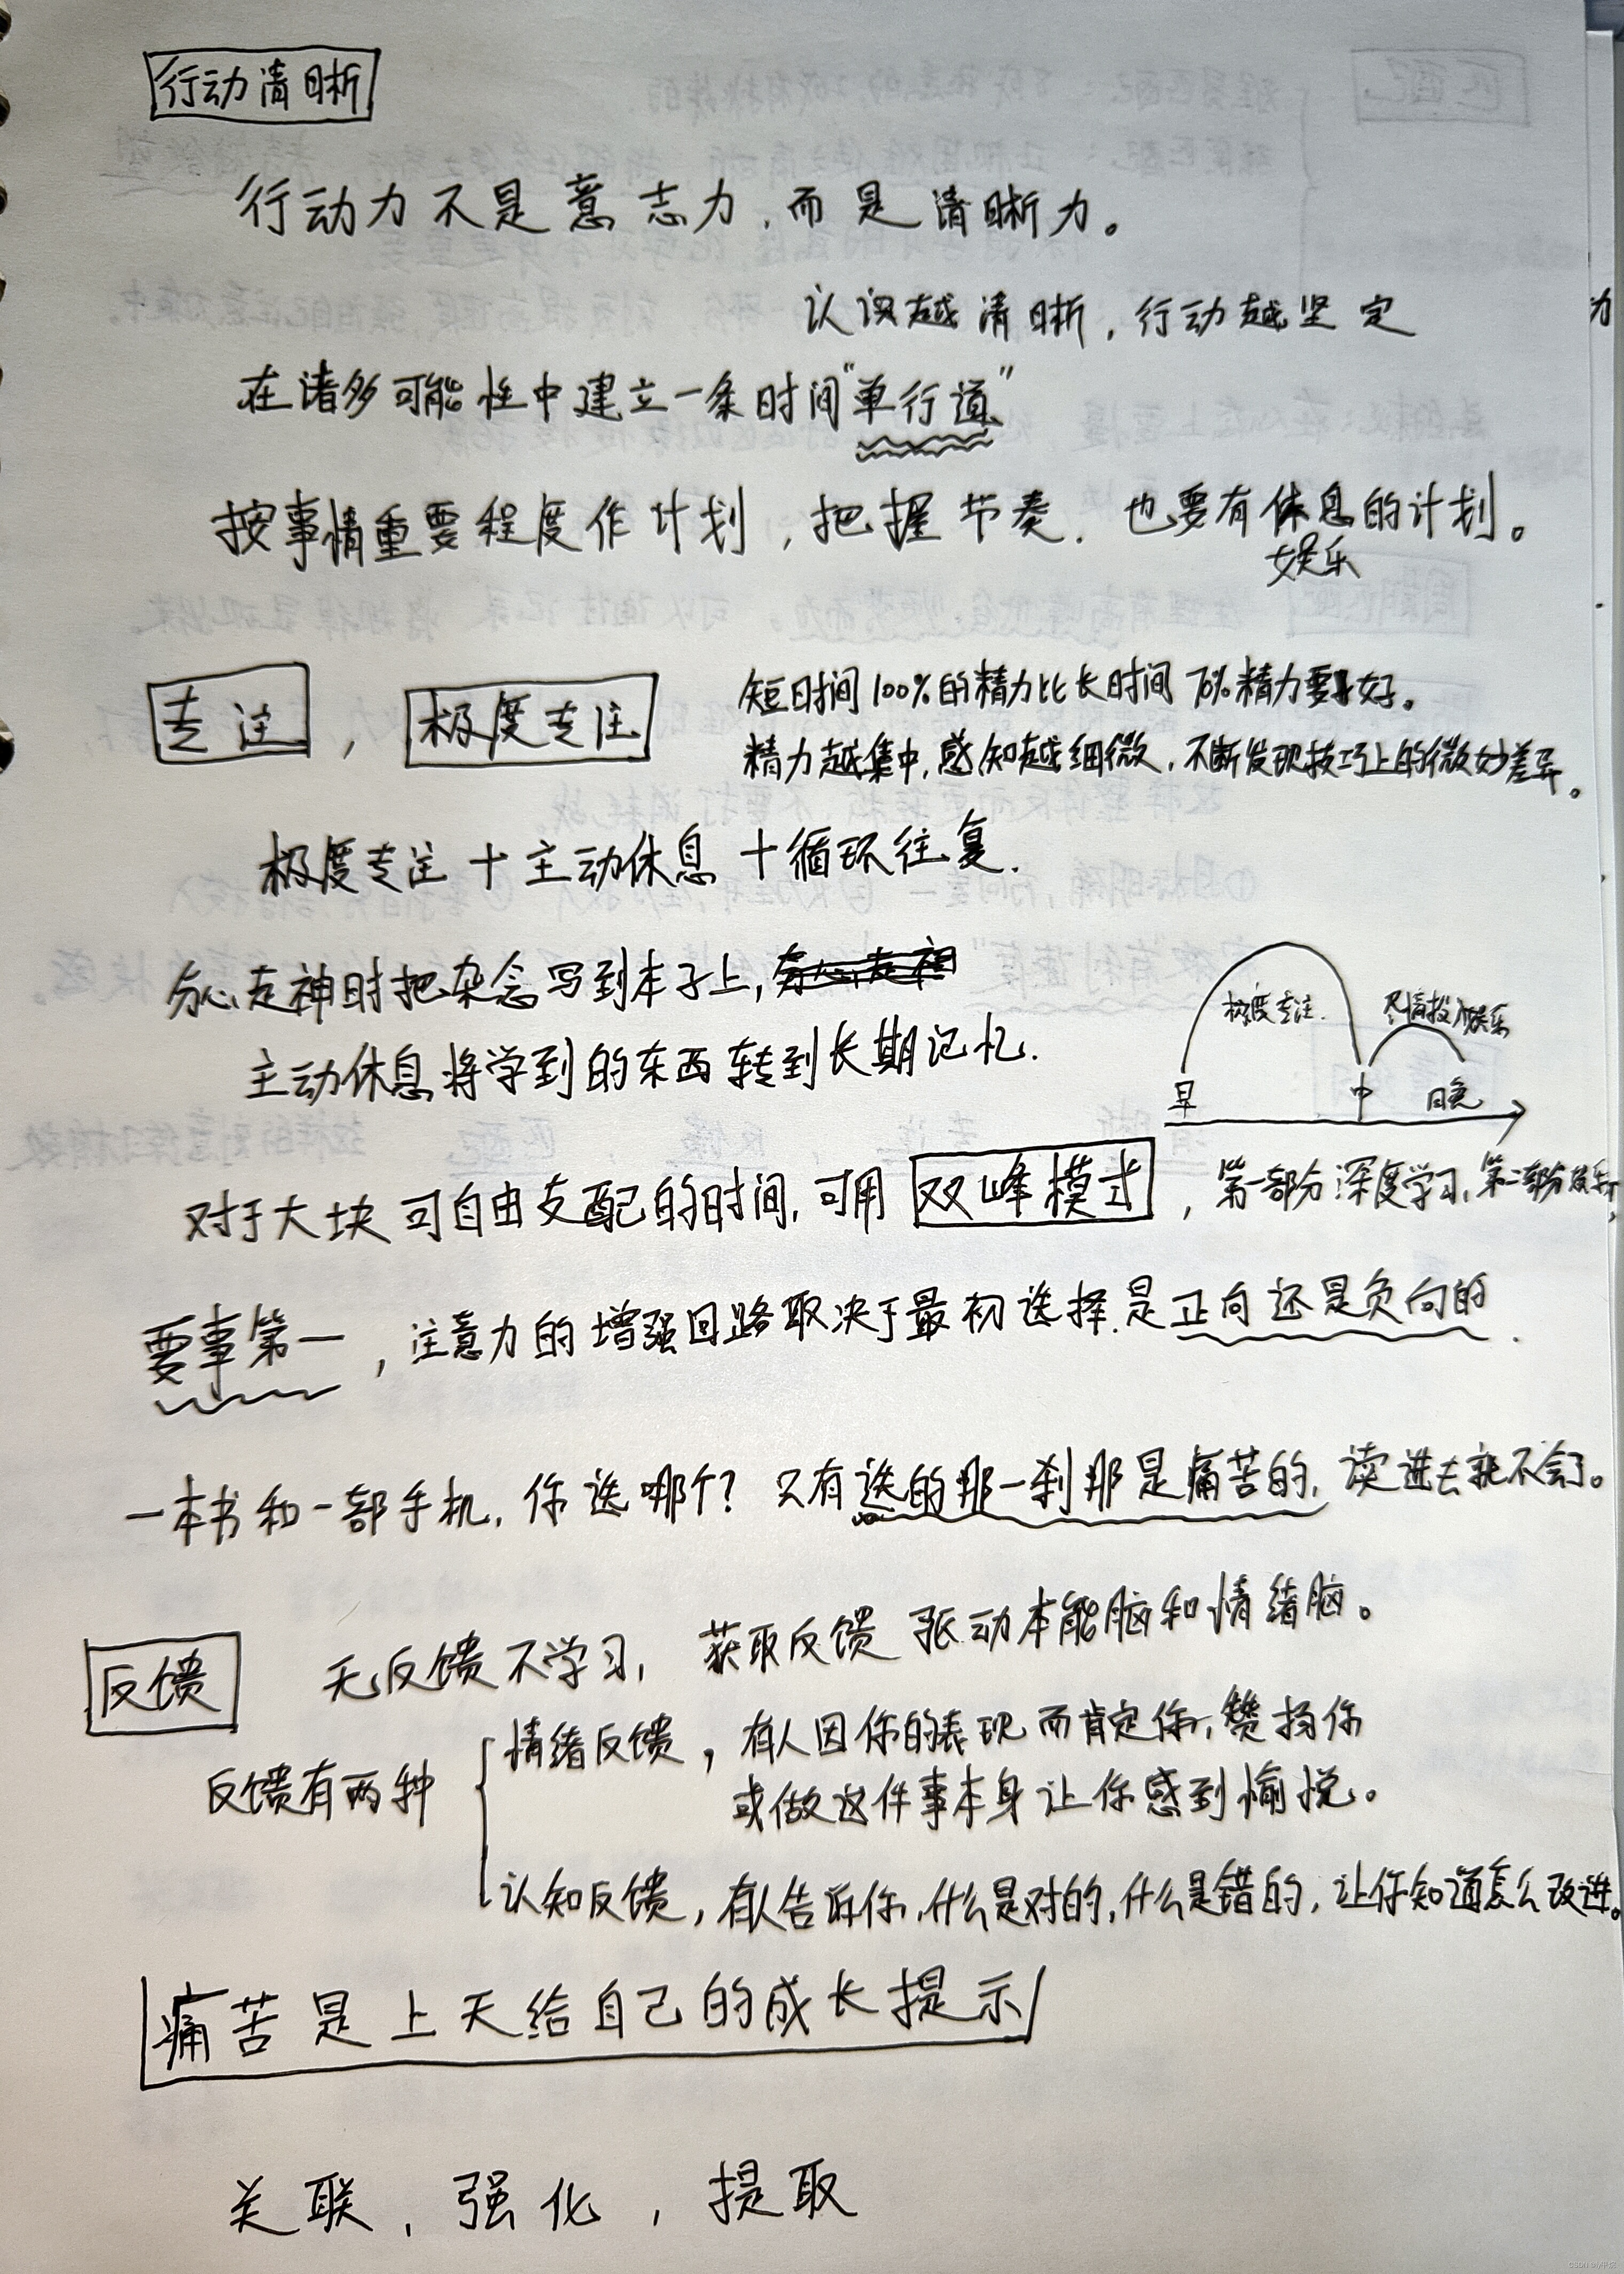 行动清晰
行动力不是意志力，而是清晰力。
认识越清晰，行动越坚定
在诸多可能性中建立一条时间“单行道”
按事情重要程度作计划，把握节奏．也要有休息的计划。
娱乐
专注，极度专注
短时间100%的精力比长时间70%精力要好。
精力越集中，感知越细微，不断发现技巧上的微妙差异。
极度专注＋主动休息＋循环往复．
分心走神时把杂念写到本子上，
主动休息将学到的东西转到长期记忆．
极度专注．
尽情投入娱乐
早 中 晚
对于大块可自由支配的时间，可用双峰模式，第一部分深度学习，第二部分娱乐
要事第一，注意力的增强回路取决于最初选择．是正向还是负向的．
一本书和一部手机，你选哪个？只有选的那一刹那是痛苦的，读进去就不会了。
反馈
无反馈不学习，获取反馈 驱动本能脑和情绪脑。
反馈有两种
情绪反馈，有人因你的表现而肯定你，赞扬你
或做这件事本身让你感到愉悦。
认知反馈，有人告诉你，什么是对的，什么是错的，让你知道怎么改进。
痛苦是上天给自己的成长提示
关联，强化，提取